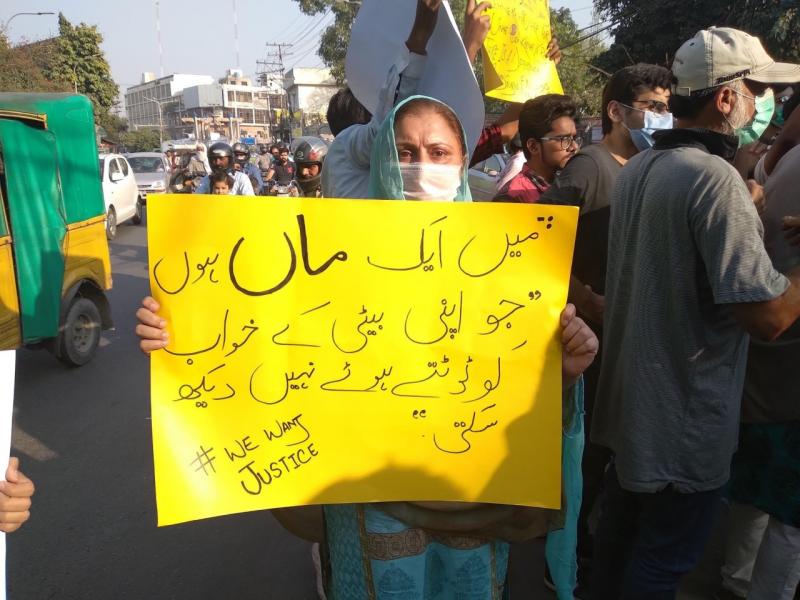 "میں ایک ماں ہوں
"جو اپنی بیٹی کے خواب
کو ٹوٹتے ہوئے نہیں دیکھ
سکتی۔"
# WE WANT
JUSTICE